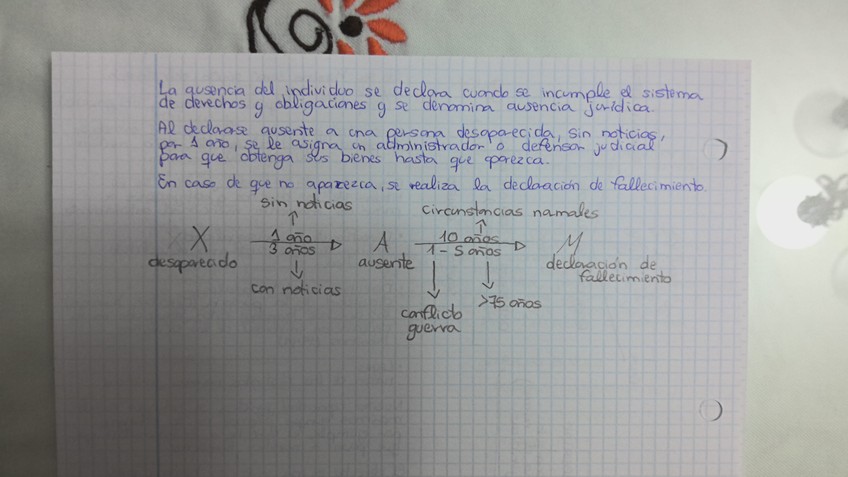 La ausencia del individuo se declara cuando se incumple el sistema
de derechos y obligaciones y se denomina ausencia jurídica.
Al declararse ausente a una persona desaparecida, sin noticias,
por 1 año, se le asigna un administrador o defensor judicial
para que obtenga sus bienes hasta que aparezca.
En caso de que no aparezca, se realiza la declaración de fallecimiento.
sin noticias circunstancias normales
X 1 año A 10 años M
3 años 1 - 5 años
desaparecido ausente declaración de
fallecimiento
con noticias >75 años
conflicto
guerra